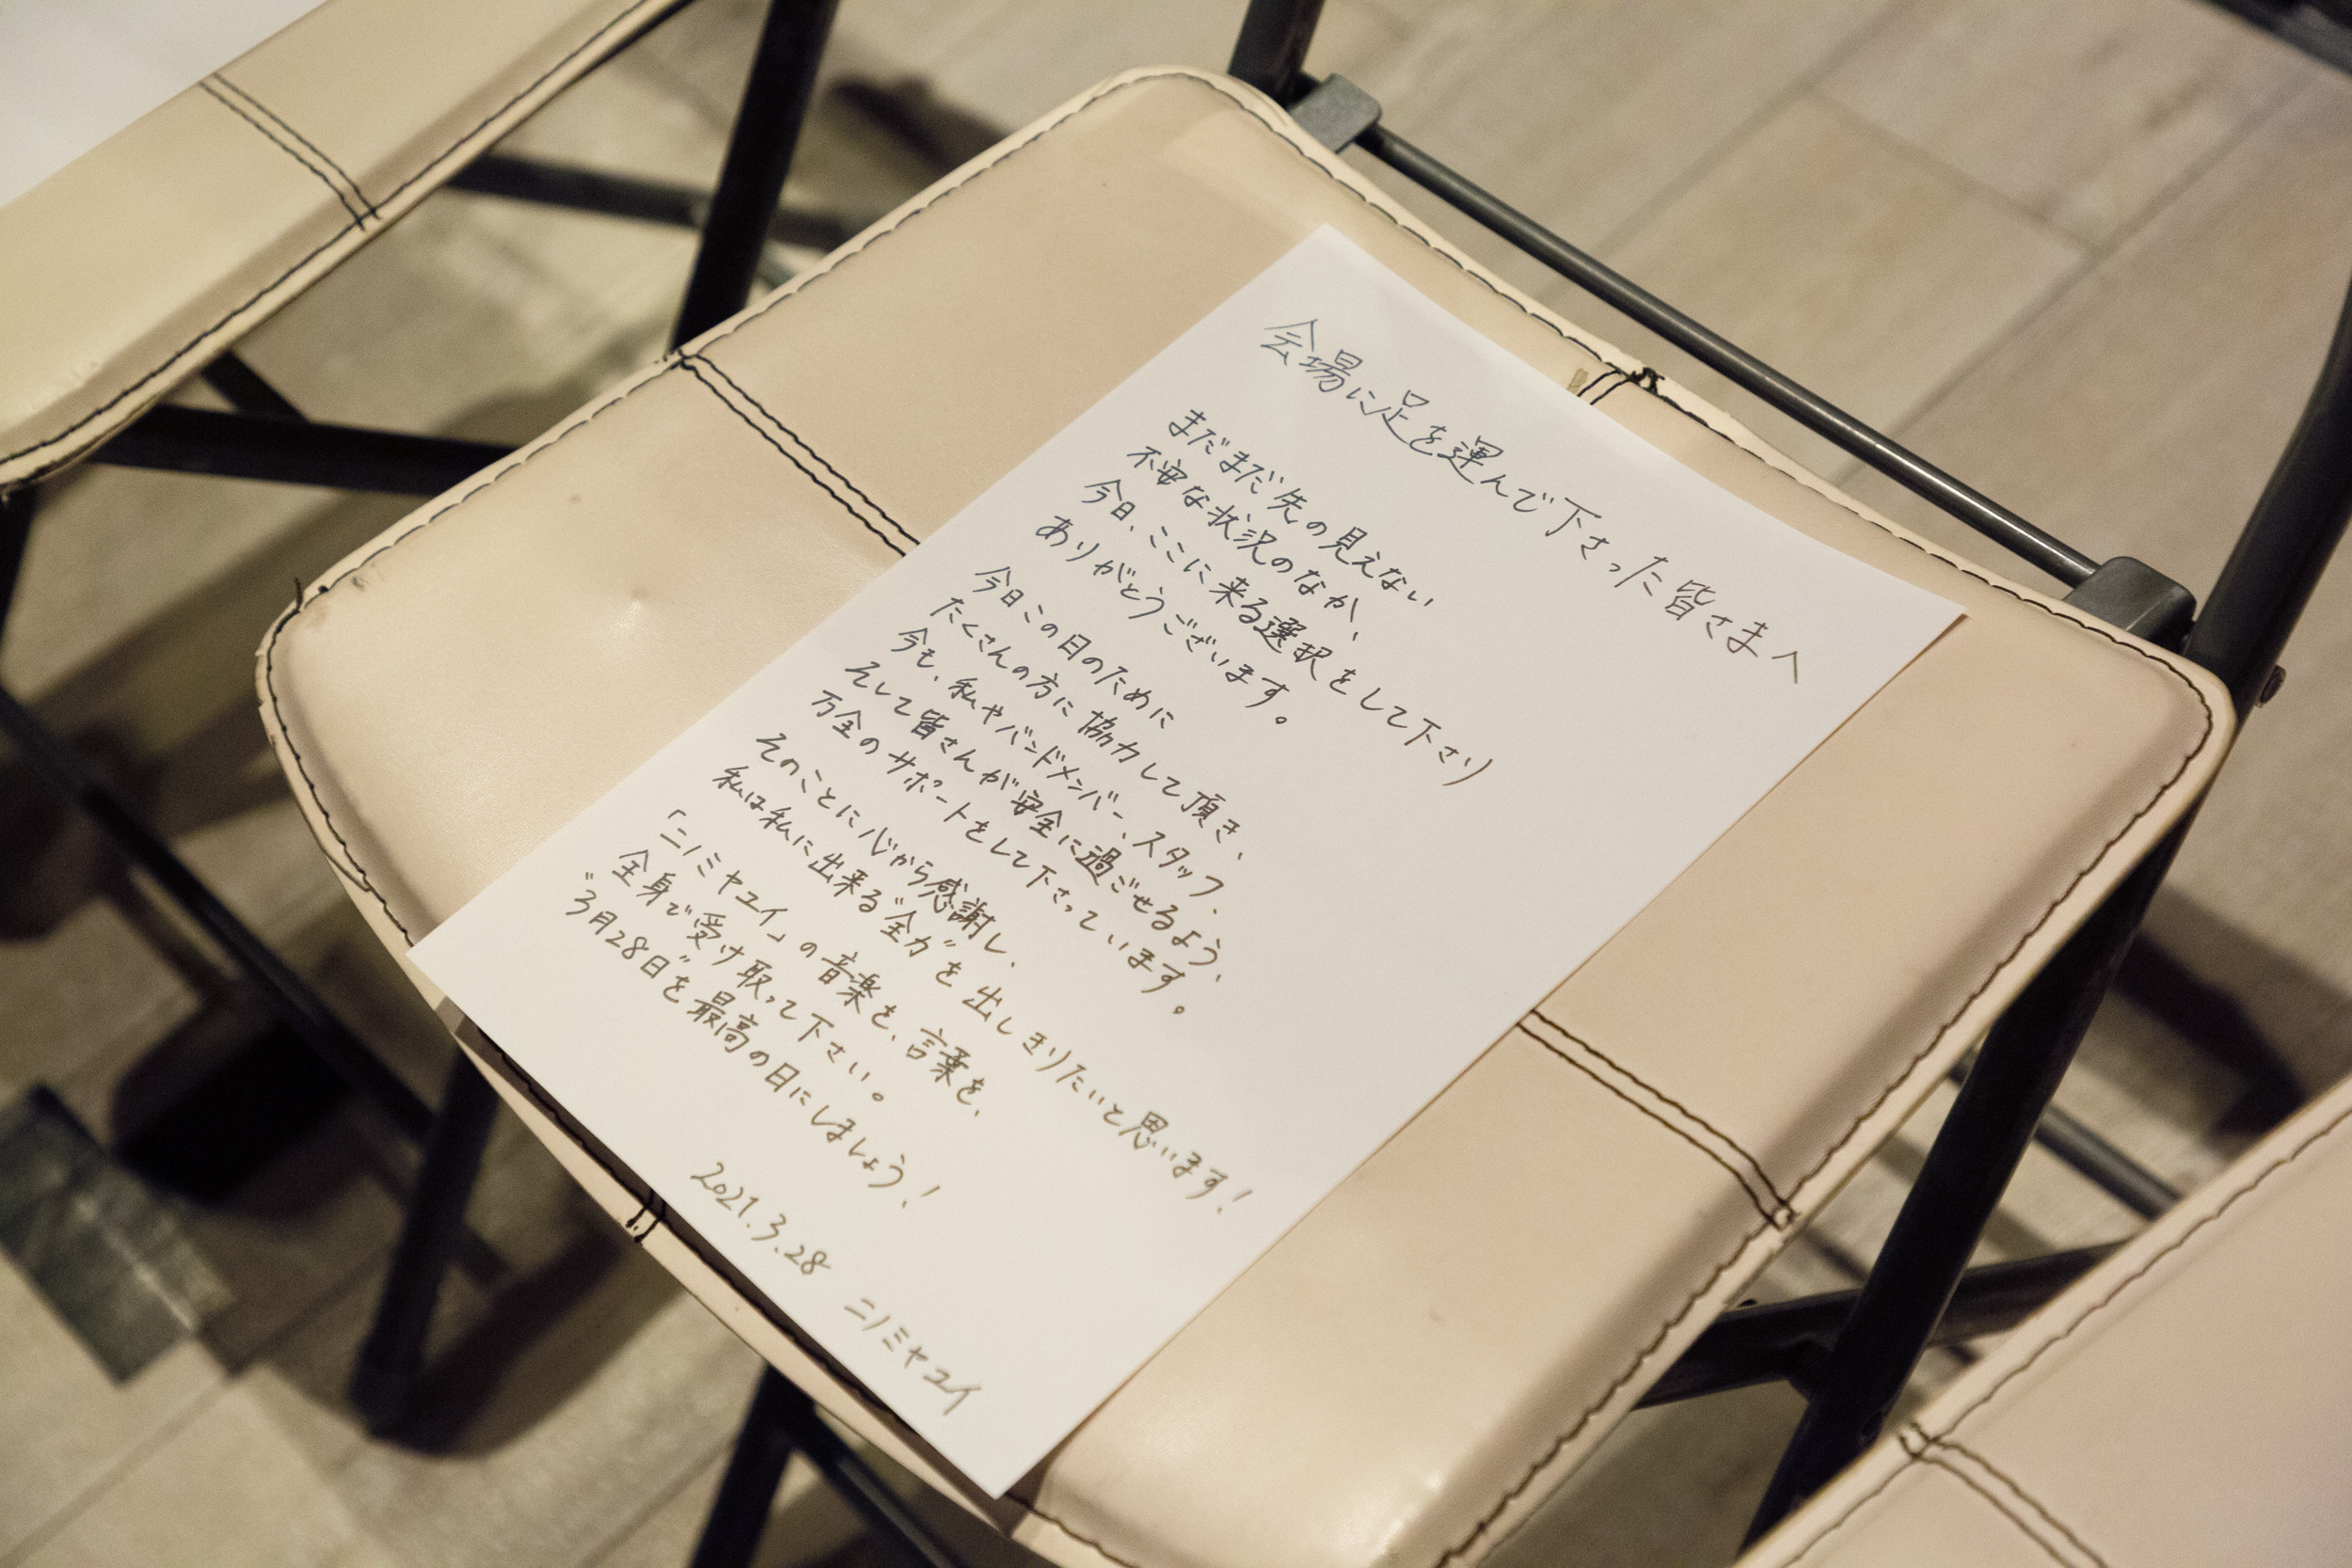 会場に足を運んで下さった皆さまへ
まだまだ先の見えない
不安な状況のなか、
今日、ここに来る選択をして下さり
ありがとうございます。
今日この日のために
たくさんの方に協力して頂き、
今も、私やバンドメンバー、スタッフ、
そして皆さんが安全に過ごせるよう、
万全のサポートをして下さっています。
そのことに心から感謝し、
私は私に出来る“全力”を出しきりたいと思います!
「ニノミヤユイ」の音楽を、言葉を、
全身で受け取って下さい。
“3月28日”を最高の日にしましょう!
2021.3.28
ニノミヤユイ